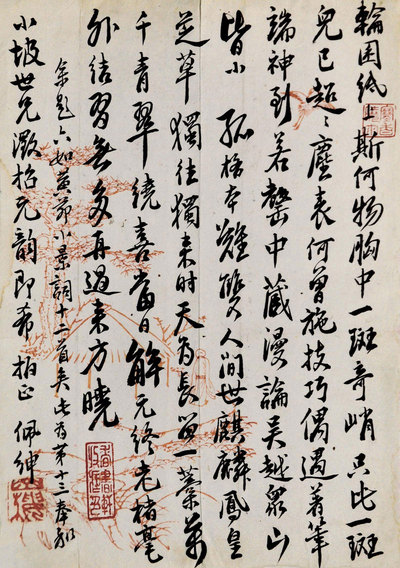 輪囷紙上斯何物胸中一斑奇峭只此一斑
兒已超〻塵表何曾施技巧偶遇著筆
端神到若壑中藏漫論吳越眾山
皆小　孤格本難雙人間世麒麟鳳皇
芝草獨往獨來時天為長留一藁萬
千青翠繞喜當日解元終老楮毫
外結習無多再過來方曉
余題六如黃茆小景詞十二首矣此為第三奉和
小坡世兄澂招元韻即希拍正　佩紳